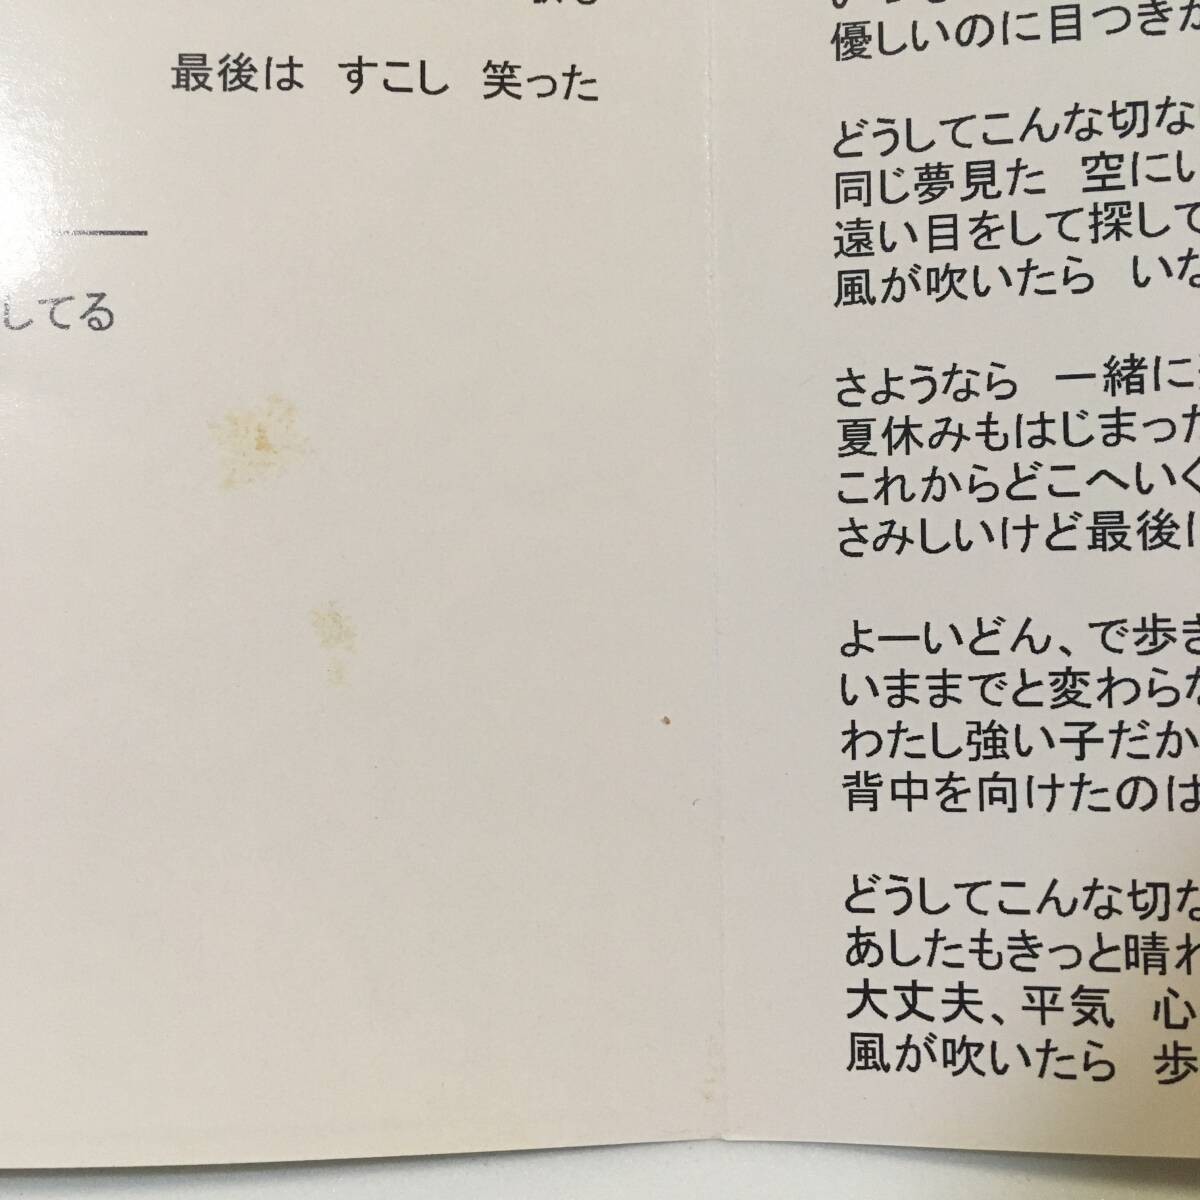 最後は すこし 笑った
してる
優しいのに目つきが
どうしてこんな切な
同じ夢見た 空にい
遠い目をして探して
風が吹いたら いな
さようなら 一緒に
夏休みもはじまった
これからどこへいく
さみしいけど最後は
よーいどん、で歩き
いままでと変わらな
わたし強い子だか
背中を向けたのは
どうしてこんな切な
あしたもきっと晴れ
大丈夫、平気 心
風が吹いたら 歩